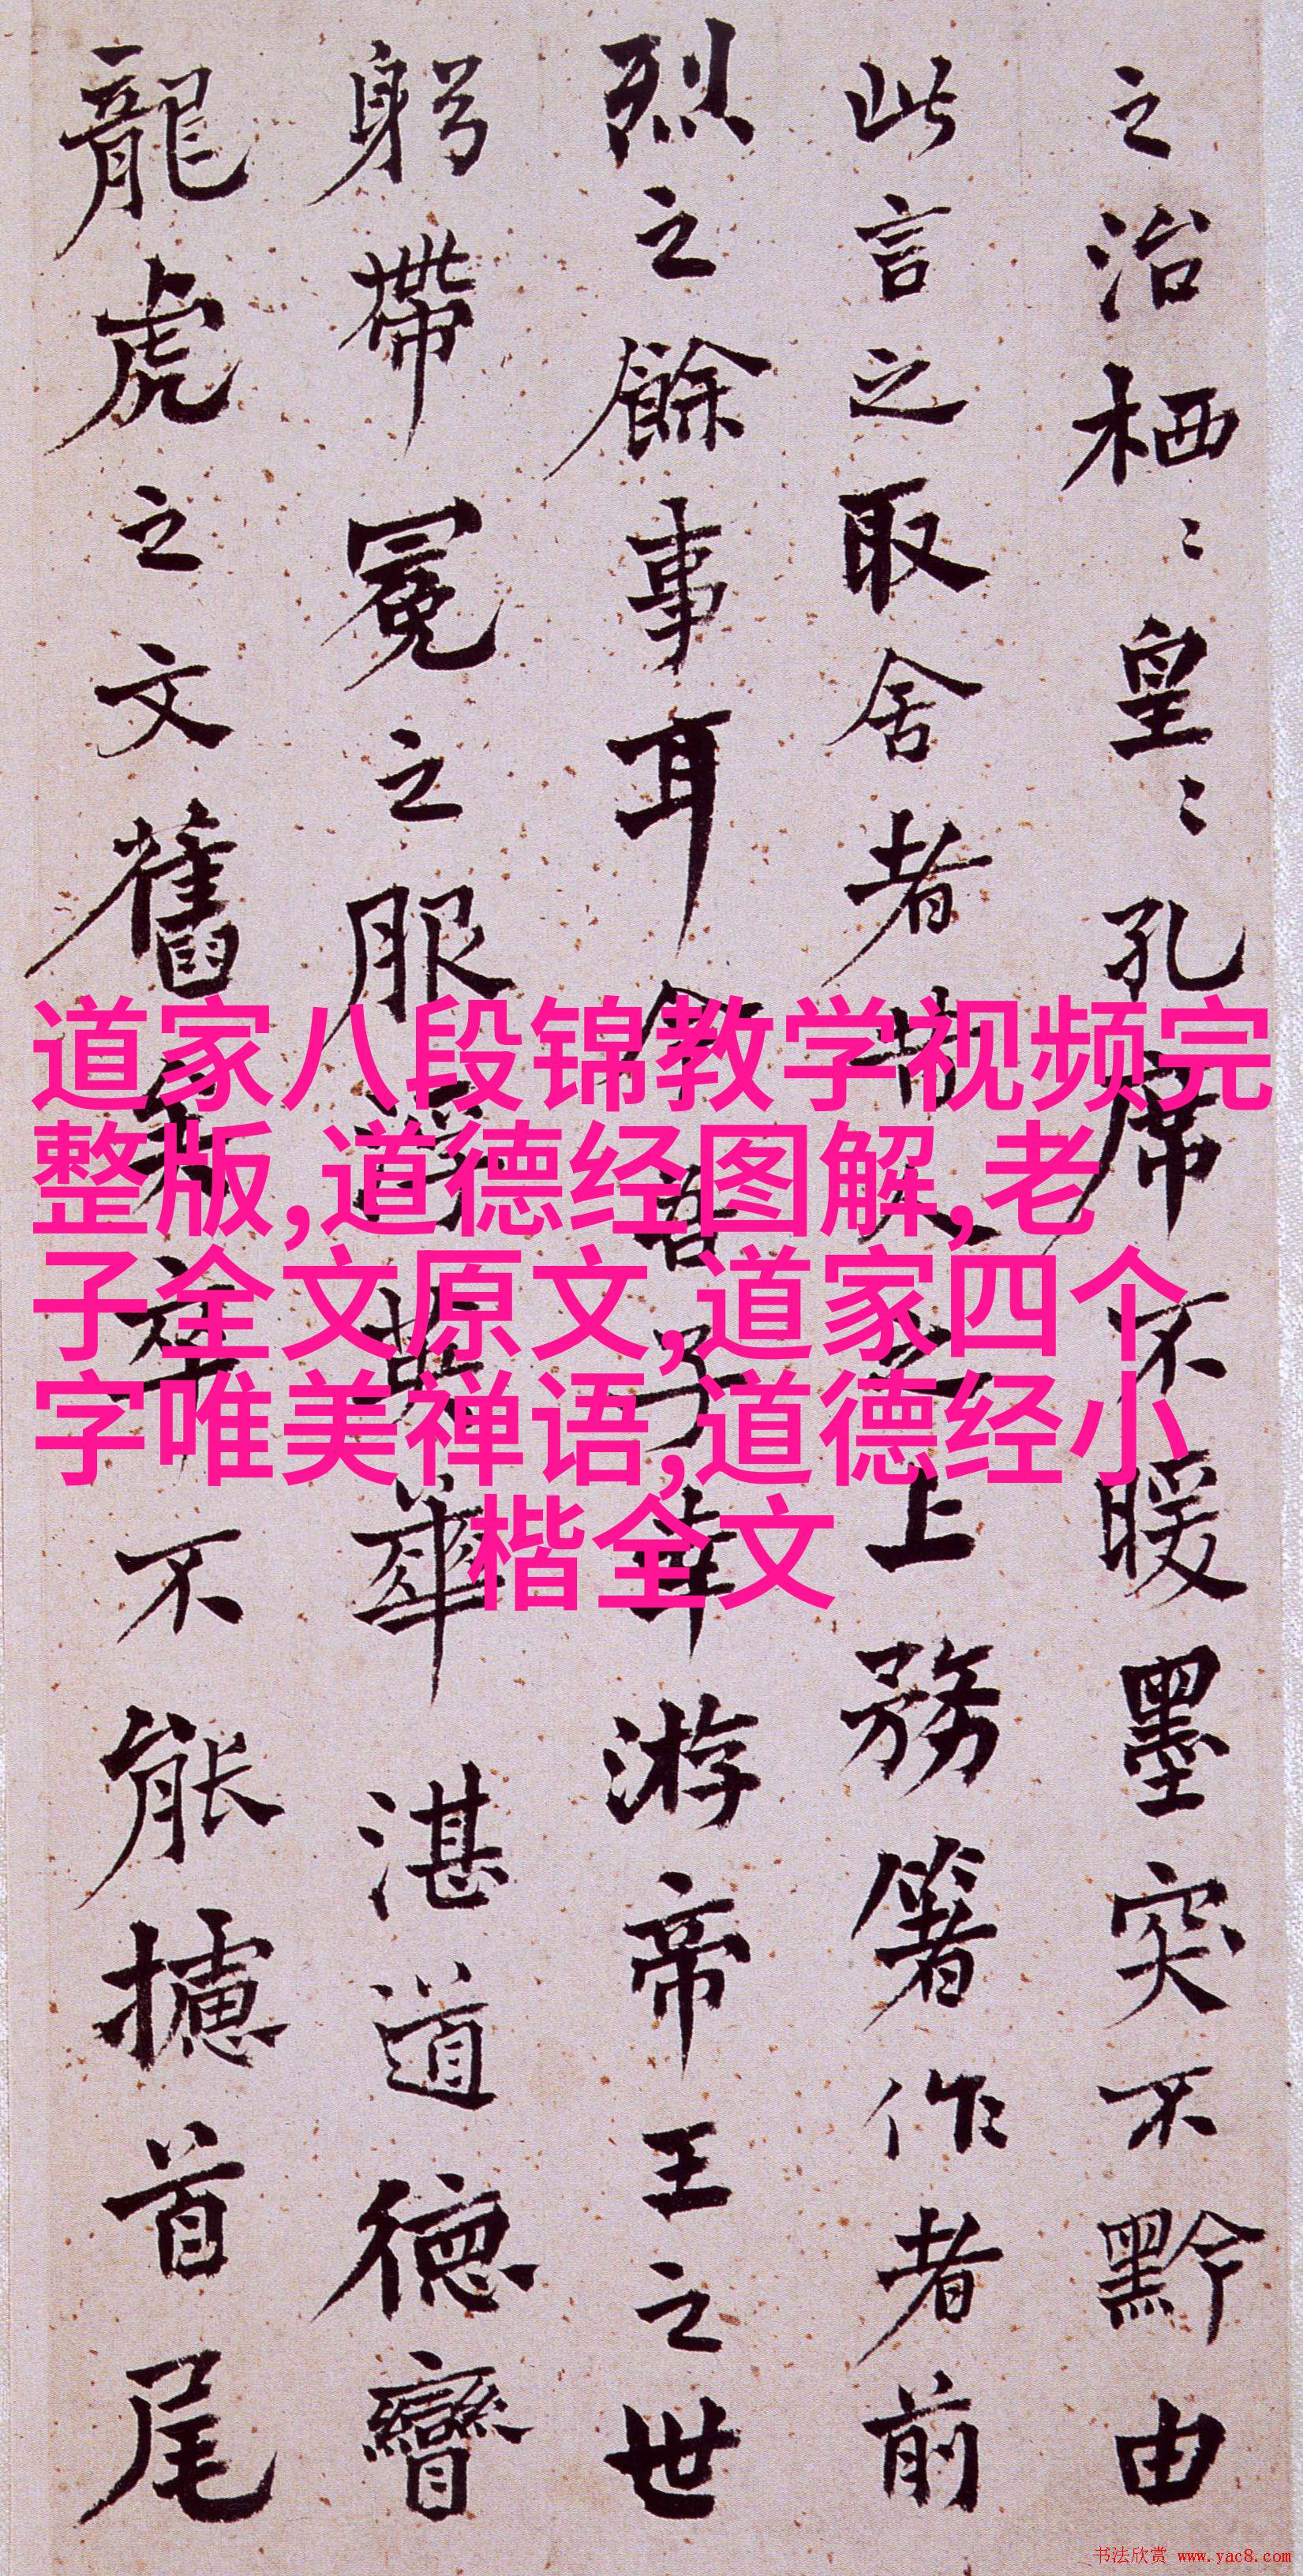 之治栖〻皇〻孔席不暖墨突不黔由
此言之取舍者昔人之上務箸作者前
烈之餘事耳今吾子幸游帝王之世
躬帶冕之服浮英華湛道德矕
龍虎之文舊矣卒不能攄首尾
道家八段锦教学视频完
整版,道德经图解,老
子全文原文,道家四个
字唯美禅语,道德经小
楷全文
书法欣赏 www.yac8.com